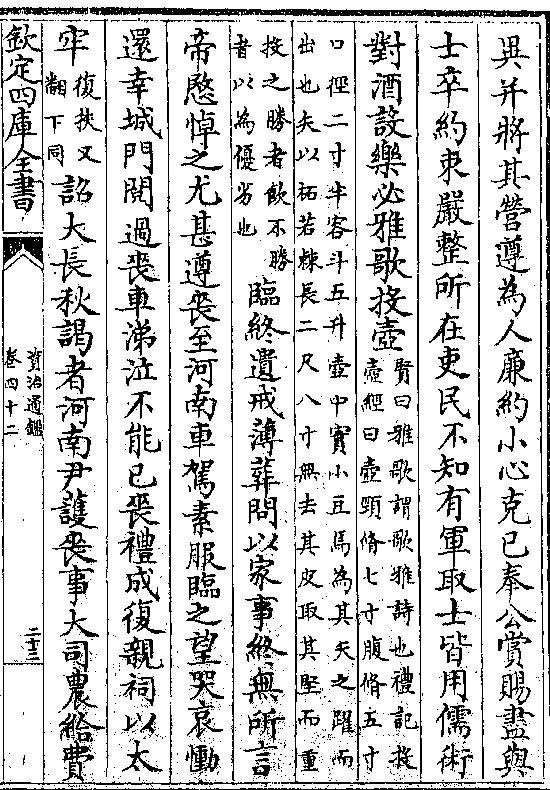 異并將其營遵為人廉約小心克己奉公賞賜盡與
士卒約束嚴整所在吏民不知有軍取士皆用儒術
對酒設樂必雅歌投壺賢曰雅歌謂歌雅詩也禮記投
壺經曰壺頸脩七寸腹脩五寸
口徑二寸半容斗五升壺中實小豆焉為其矢之躍而
出也矢以柘若棘長二尺八寸無去其皮取其堅而重
投之勝者飲不勝
者以為優劣也臨終遺戒薄葬問以家事終無所言
帝愍悼之尤甚遵喪至河南車駕素服臨之望哭哀慟
還幸城門閱過喪車涕泣不能已喪禮成復親祠以太
牢復扶又
翻下同詔大長秋謁者河南尹護喪事大司農給費
欽定四庫全書
資治通鑑
卷四十二
二十三